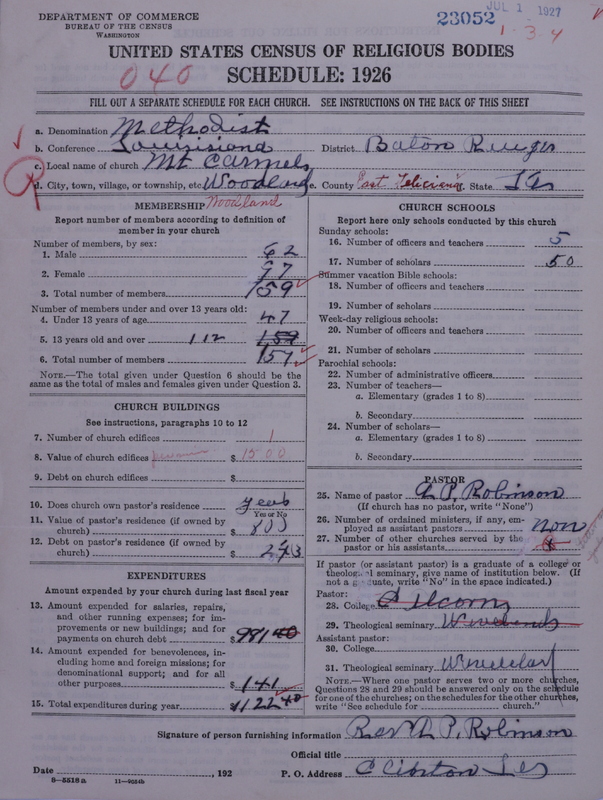 DEPARTMENT OF COMMERCE
BUREAU OF THE CENSUS
WASHINGTON
23052
JUL 1 1927
1 · 3 · 4
UNITED STATES CENSUS OF RELIGIOUS BODIES
040
SCHEDULE: 1926
FILL OUT A SEPARATE SCHEDULE FOR EACH CHURCH. SEE INSTRUCTIONS ON THE BACK OF THIS SHEET
a. Denomination Methodist
b. Conference Louisiana District Baton Ruge
c. Local name of church Mt Carmel
d. City, town, village, or township, etc. Woodland e. County East Feliciana State La
MEMBERSHIP Woodland
Report number of members according to definition of member in your church
Number of members, by sex:
1. Male 62
2. Female 97
3. Total number of members 159
Number of members under and over 13 years old:
4. Under 13 years of age 47
5. 13 years old and over 112
6. Total number of members 159
NOTE.—The total given under Question 6 should be
same as the total of males and females given under Question 3.
CHURCH BUILDINGS
See instructions, paragraphs 10 to 12
7. Number of church edifices 1
8. Value of church edifices $ 1500
9. Debt on church edifices $
10. Does church own pastor's residence yes
Yes or No
11. Value of pastor's residence (if owned by
church) $ 800
12. Debt on pastor's residence (if owned by
church) $ 243
EXPENDITURES
Amount expended by your church during last fiscal year
13. Amount expended for salaries, repairs,
and other running expenses; for im-
provements or new buildings; and for
payments on church debt $ 981 40
14. Amount expended for benevolences,
including home and foreign missions; for
denominational support; and for all
other purposes $ 141
15. Total expenditures during year $ 1122 40
CHURCH SCHOOLS
Report here only schools conducted by this church
Sunday schools:
16. Number of officers and teachers 5
17. Number of scholars 50
Summer vacation Bible schools:
18. Number of officers and teachers
19. Number of scholars
Week-day religious schools:
20. Number of officers and teachers
21. Number of scholars
Parochial schools:
22. Number of administrative officers
23. Number of teachers—
a. Elementary (grades 1 to 8)
b. Secondary
24. Number of scholars—
a. Elementary (grades 1 to 8)
b. Secondary
PASTOR
25. Name of pastor R P. Robinson
(If church has no pastor, write "None")
26. Number of ordained ministers, if any, em-
ployed as assistant pastors non
27. Number of other churches served by the
pastor or his assistants
If pastor (or assistant pastor) is a graduate of a college or
theological seminary, give name of institution below. (If
not a graduate, write "No" in the space indicated.)
Pastor:
28. College Alcorn
29. Theological seminary
Assistant pastor:
30. College
31. Theological seminary
NOTE.—Where one pastor serves two or more churches,
Questions 28 and 29 should be answered only on the schedule
for one of the churches; on the schedules for the other churches,
write "See schedule for church."
Signature of person furnishing information P. Robinson
Official title
Date , 192 P. O. Address Clinton La
8—5518a 11—9554b